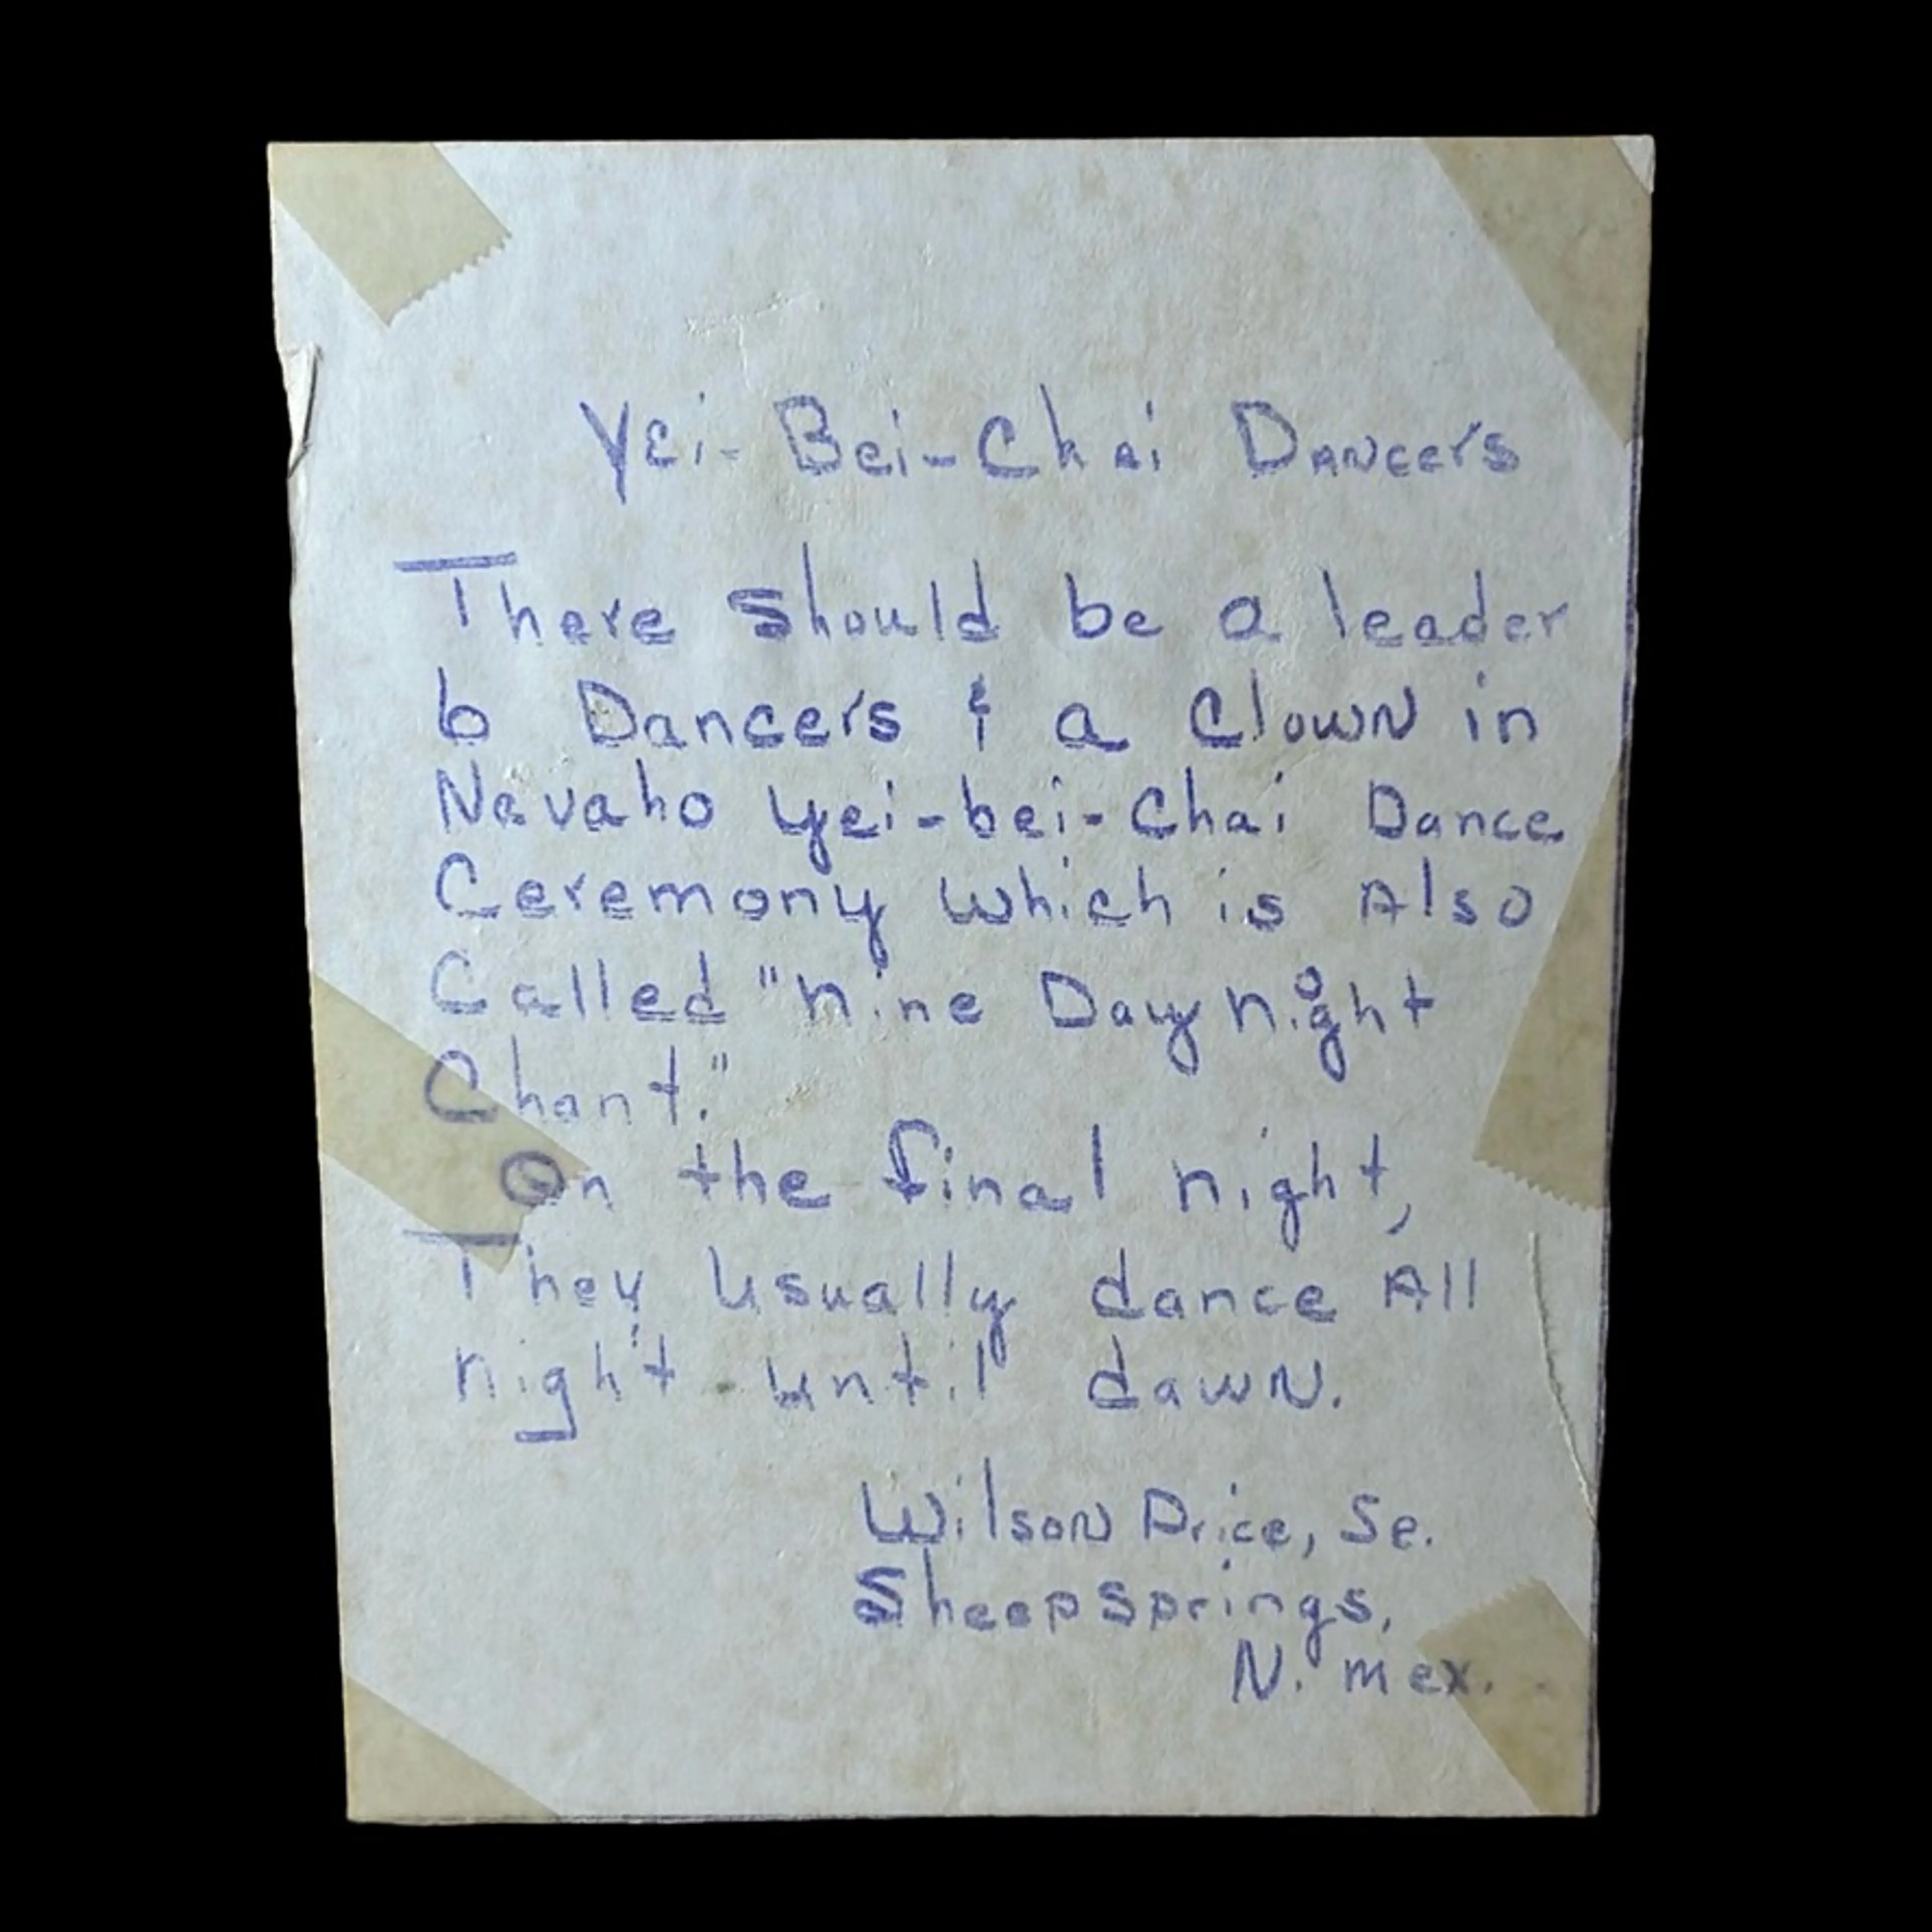 Yei-Bei-Chai Dancers
There should be a leader
6 Dancers & a Clown in
Navaho Yei-bei-Chai Dance
Ceremony which is Also
Called "Nine Day Night
Chant."
On the final night,
They usually dance All
night until dawn.
Wilson Price, Sr.
Sheepsprings,
N. Mex.